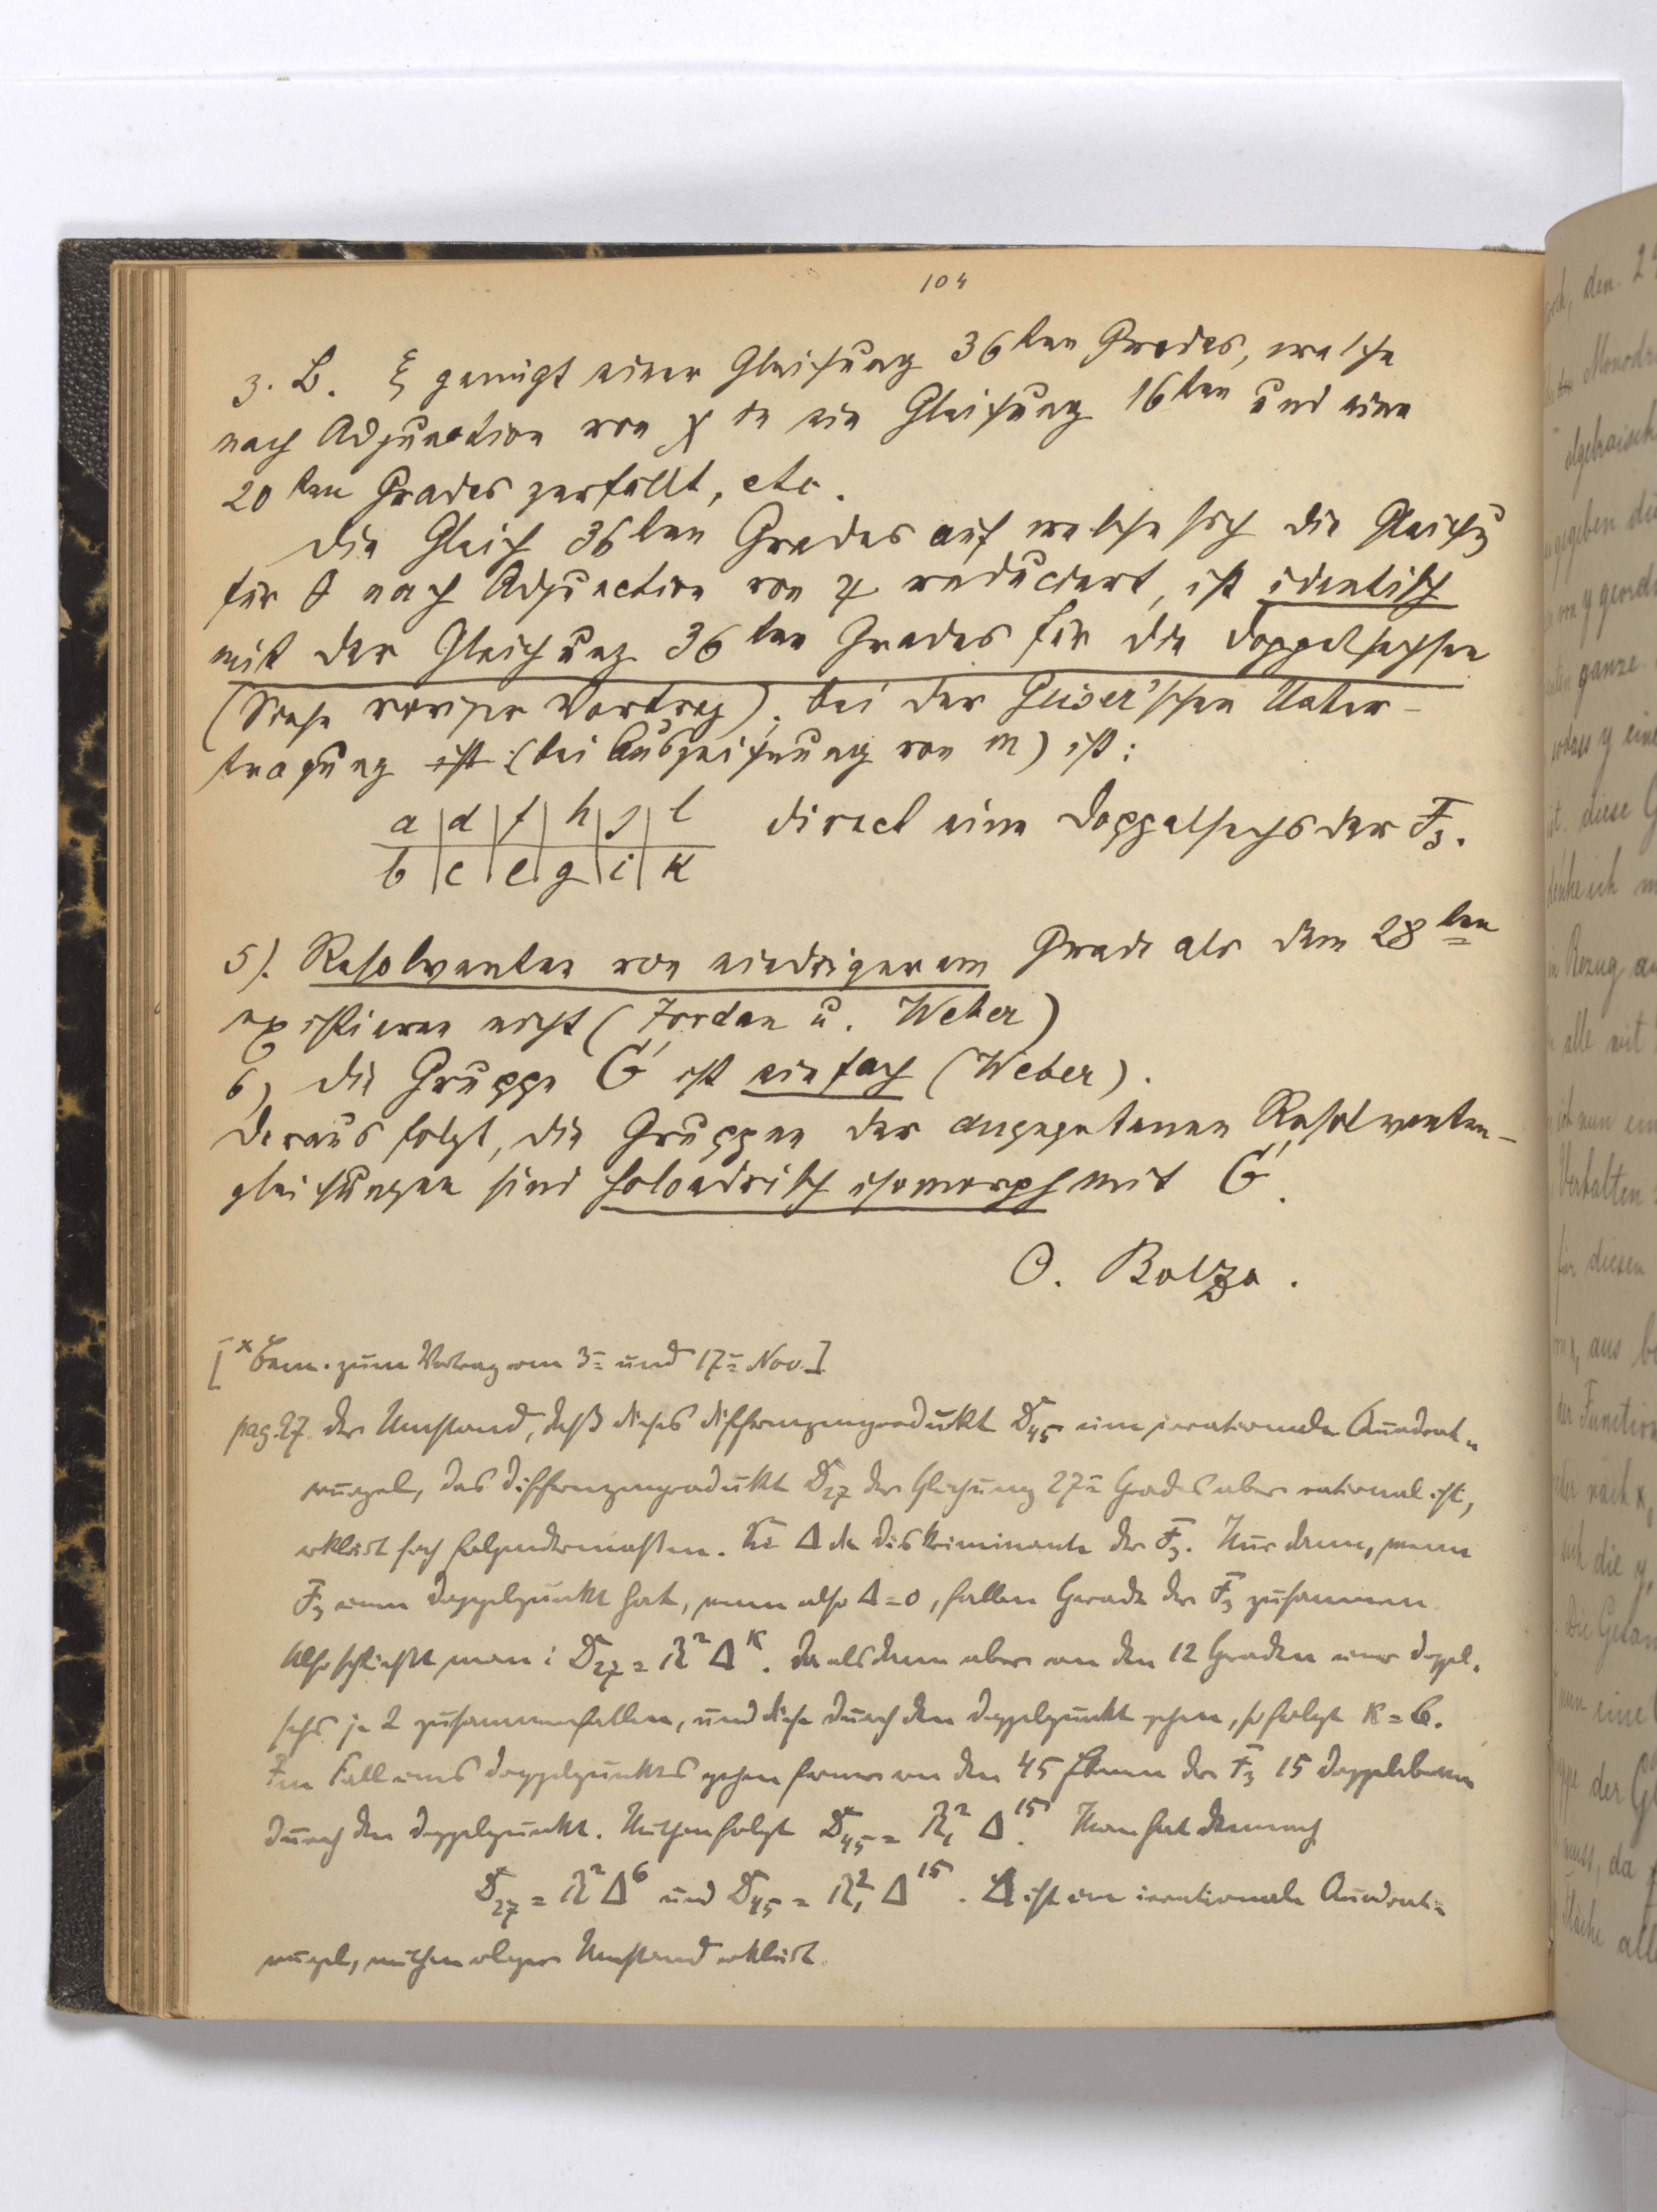 104
z. B. ξ genügt einer Gleichung 36ten Grades, welche
nach Adjunction von χ in eine Gleichung 16ten und eine
20ten Grades zerfällt, etc.
Die Gleich 36ten Grades auf welche sich die Gleichg
für θ nach Adjunction von χ reduciert, ist identisch
mit der Gleichung 36ten Grades für die Doppelsechsen
(Siehe voriger Vortrag); bei der Geiser'schen Ueber-
tragung ist (bei Auszeichnung von m) ist:
a | d | f | h | j | l direct eine Doppelsechs der F3.
b | c | e | g | i | k
5). Resolventen von niedrigerem Grade als dem 28ten
existieren nicht (Jordan u. Weber)
6) Die Gruppe G' ist einfach (Weber).
Daraus folgt, die Gruppen der angegebenen Resolventen-
gleichungen sind holoedrisch isomorph mit G'.
O. Bolza.
[x Bem. zum Vortrag vom 3= und 17= Nov.]
pag. 27. Der Umstand, daß dieses Differenzenprodukt D45 eine irrationale Quadrat-
wurzel, das Differenzenprodukt D27 der Gleichung 27= Grades aber rational ist,
erklärt sich folgendermaßen. Sei Δ die Diskriminante der F3. Nur dann, wenn
F3 einen Doppelpunkt hat, wenn also Δ=0, fallen Gerade der F3 zusammen.
Also schließt man: D27 = R² Δᴷ. Da alsdann aber von den 12 Geraden einer Doppel-
sechs je 2 zusammenfallen, und diese durch den Doppelpunkt gehen, so folgt K=6.
Im Fall eines Doppelpunktes gehen ferner von den 45 Ebenen der F3 15 Doppelebenen
durch den Doppelpunkt. Mithin folgt D45 = R1² Δ¹⁵. Man hat demnach
D27 = R² Δ⁶ und D45 = R1² Δ¹⁵. Δ ist eine irrationale Quadrat-
wurzel, mithin obiger Umstand erklärt.